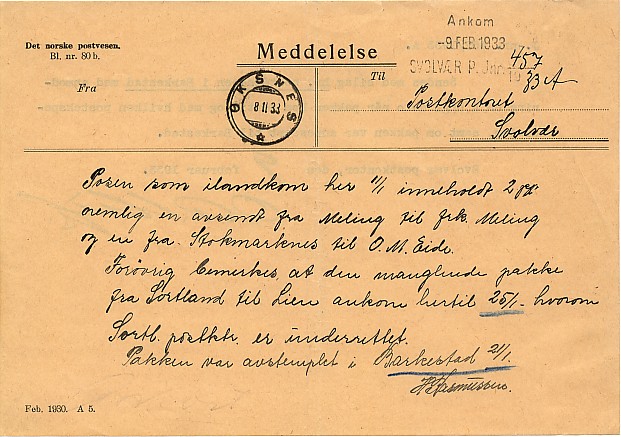 Ankom
-9.FEB.1933
SVOLVÆR P. Jnr. 457
19 33 A
Det norske postvesen.
Bl. nr. 80 b.
Meddelelse
Fra
Til
ØKSNES
8 II 33
Postkontoret
Svolvær
Posen som ilandkom her 11/1 inneholdt 2 pk
nemlig en avsendt fra Meling til frk. Meling
og en fra Stokmarknes til O. M. Eide.
Forøvrig bemerkes, at den manglende pakke
fra Sortland til Lien ankom hertil 25/1 - hvorom
Sortl. postktr. er underrettet.
Pakken var avstemplet i Barkestad 21/1.
Rasmussen.
Feb. 1930. A 5.